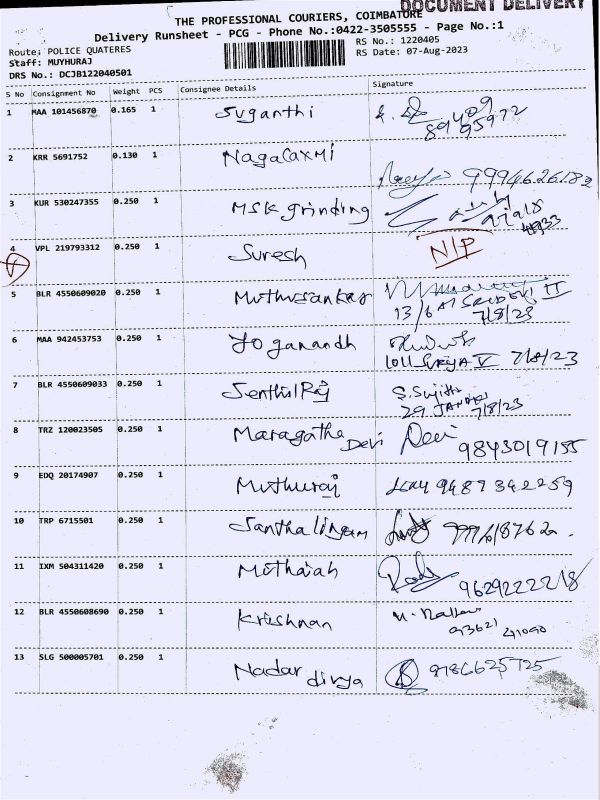 DOCUMENT DELIVERY
THE PROFESSIONAL COURIERS, COIMBATORE
Delivery Runsheet - PCG - Phone No.:0422-3505555 - Page No.:1
Route: POLICE QUATERES
RS No.: 1220405
Staff: MUYHURAJ
RS Date: 07-Aug-2023
DRS No.: DCJB122040501
S No Consignment No Weight PCS Consignee Details Signature
1 MAA 101456870 0.165 1 Suganthi
2 KRR 5691752 0.130 1 Nagalaxmi
9994626182
3 KUR 530247355 0.250 1 MSK grinding
4 VPL 219793312 0.250 1 Suresh N/P
5 BLR 4550609020 0.250 1 Muthusankar
7/8/23
6 MAA 942453753 0.250 1 Yoganandh
7/8/23
7 BLR 4550609033 0.250 1 SenthilRaj S. Sujitha
7/8/23
8 TRZ 120023505 0.250 1 Maragatha Devi Devi 9843019155
9 EDQ 20174907 0.250 1 Muthuraj 9487342259
10 TRP 6715501 0.250 1 Santhalingam
11 IXM 504311420 0.250 1 Muthaiah
9629222218
12 BLR 4550608690 0.250 1 Krishnan
93621 41090
13 SLG 500005701 0.250 1 Nadar divya 9786625725